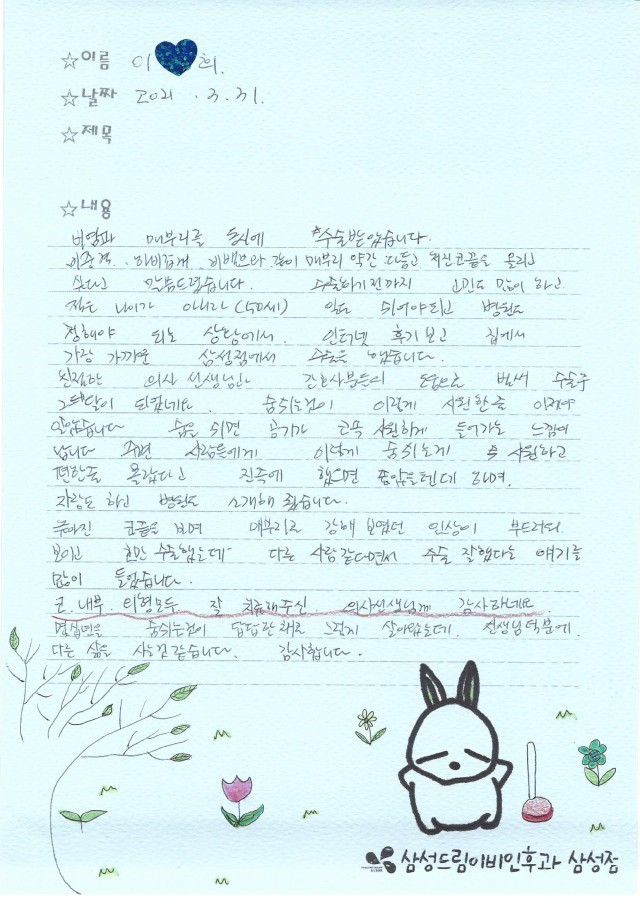 ☆이름 이 희.
☆날짜 2021. 3. 31.
☆제목
☆내용
비염과 매부리를 동시에 수술받았습니다.
비중격, 하비갑개, 비밸브와 같이 매부리 약간 다듬고 처진코끝을 올리고
싶다고 말씀드렸습니다. 수술하기전까지 고민도 많이 하고
적은 나이가 아니라 (50세) 일도 쉬어야되고 병원도
정해야 되는 상황에서. 인터넷 후기보고 집에서
가장 가까운 삼성점에서 수술을 했습니다.
친절한 의사 선생님과 간호사분들의 도움으로 수술후
한달이 되었네요. 숨쉬는것이 이렇게 시원한줄 이제야
알았습니다 숨을 쉬면 공기가 코속 시원하게 들어가는 느낌이
납니다 주변 사람들에게 이렇게 숨쉬는게 시원하고
편한줄 몰랐다고 진즉에 했으면 좋았을텐데 하며.
자랑도 하고 병원도 소개해 줬습니다.
높아진 코끝을 보며 매부리로 강해 보였던 인상이 부드러워
보이고 코만 수술했는데 다른 사람같다면서 수술 잘했다는 얘기를
많이 들었습니다.
코. 내부. 외형모두 잘 치료해주신 의사선생님께 감사하네요.
몇십년을 숨쉬는것이 답답한채로 그렇게 살아왔는데. 선생님덕분에.
다른 삶을 사는것같습니다. 감사합니다.
삼성드림이비인후과 삼성점